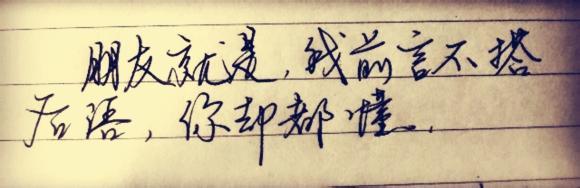 朋友就是，我前言不搭
后语，你却都懂。